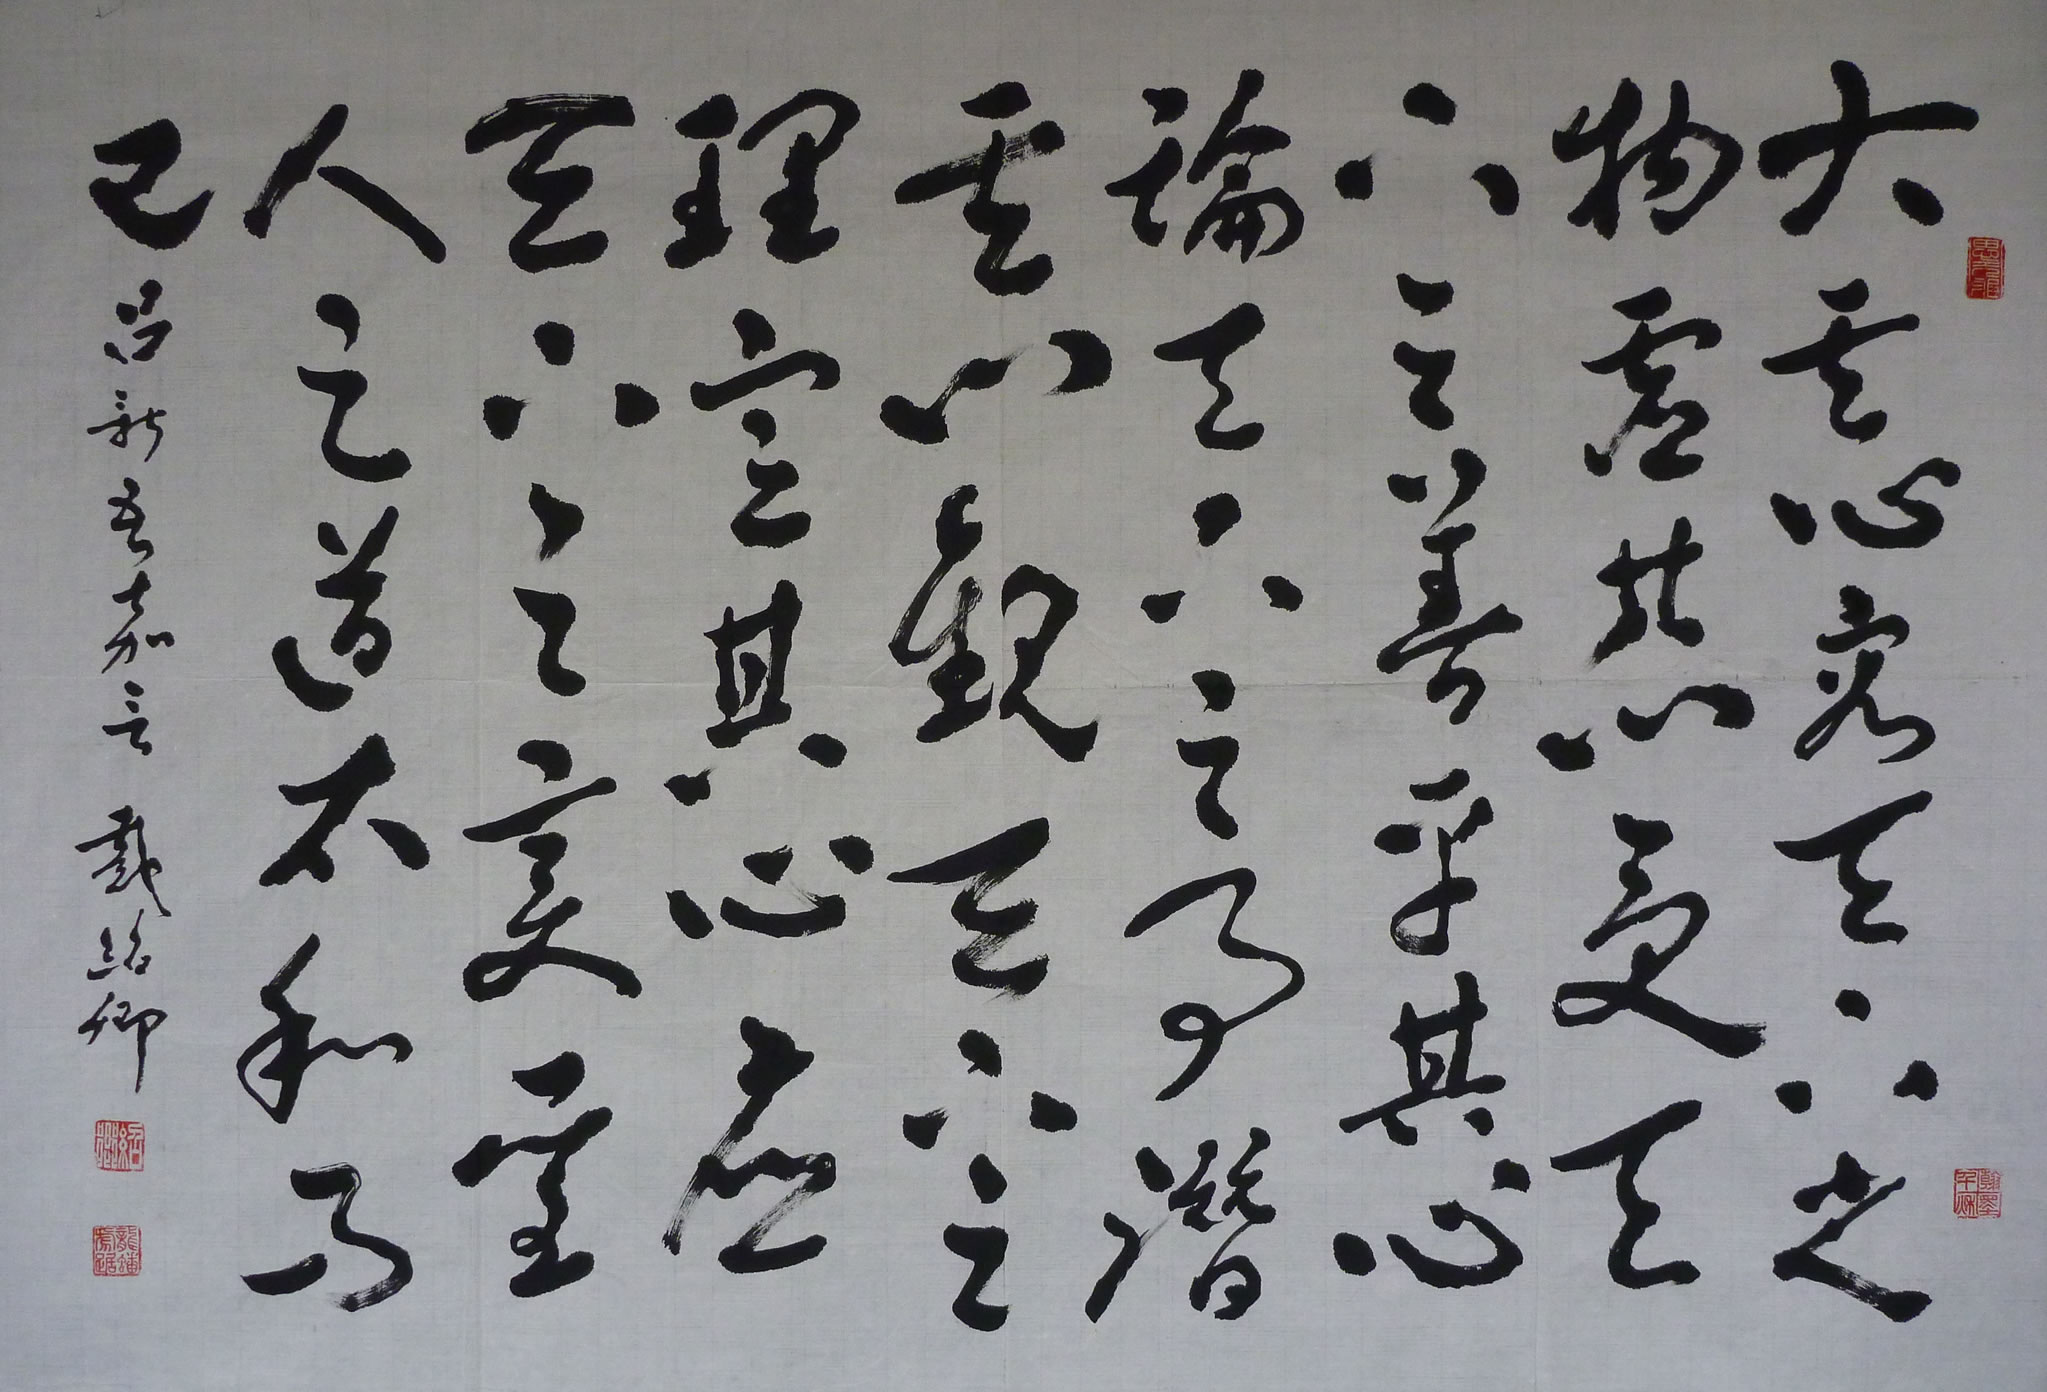 大其心容天下之
物虛其心受天
下之善平其心
論天下之事潛
其心觀天下之
理定其心應
天下之變聖
人之道太和而
已 呂新吾嘉言 戴紹卿